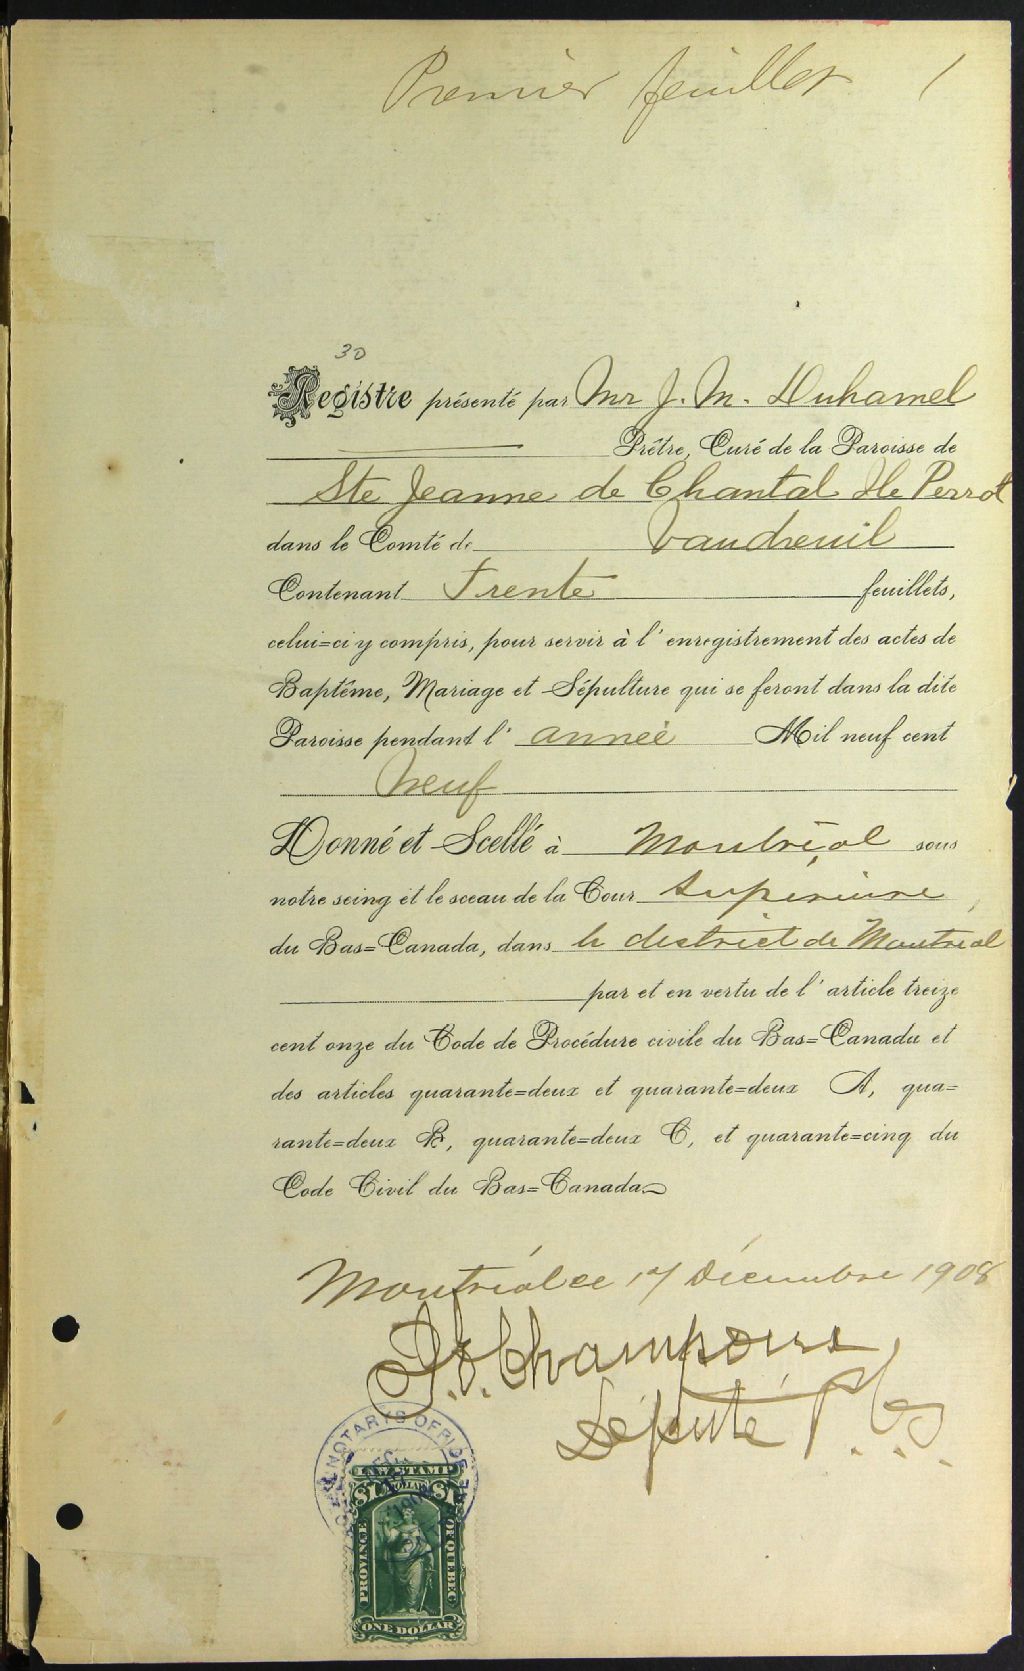 Premier feuillet 1
30
Registre présenté par Mr J. M. Duhamel
Prêtre, Curé de la Paroisse de
Ste Jeanne de Chantal Ile Perrot
dans le Comté de Vaudreuil
Contenant Trente feuillets,
celui=ci y compris, pour servir à l'enregistrement des actes de
Baptême, Mariage et Sépulture qui se feront dans la dite
Paroisse pendant l' année Mil neuf cent
Neuf
Donné et Scellé à Montréal sous
notre seing et le sceau de la Cour Supérieure,
du Bas=Canada, dans le district de Montréal
par et en vertu de l'article treize
cent onze du Code de Procédure civile du Bas=Canada et
des articles quarante=deux et quarante=deux A, qua=
rante=deux B, quarante=deux C, et quarante=cinq du
Code Civil du Bas=Canada
Montréal ce 17 Décembre 1908
Champoux
Député P.C.S.
NOTARY'S OFFICE
DEC
LAW STAMP
$1 DOLLAR $1
PROVINCE
OF QUEBEC
ONE DOLLAR